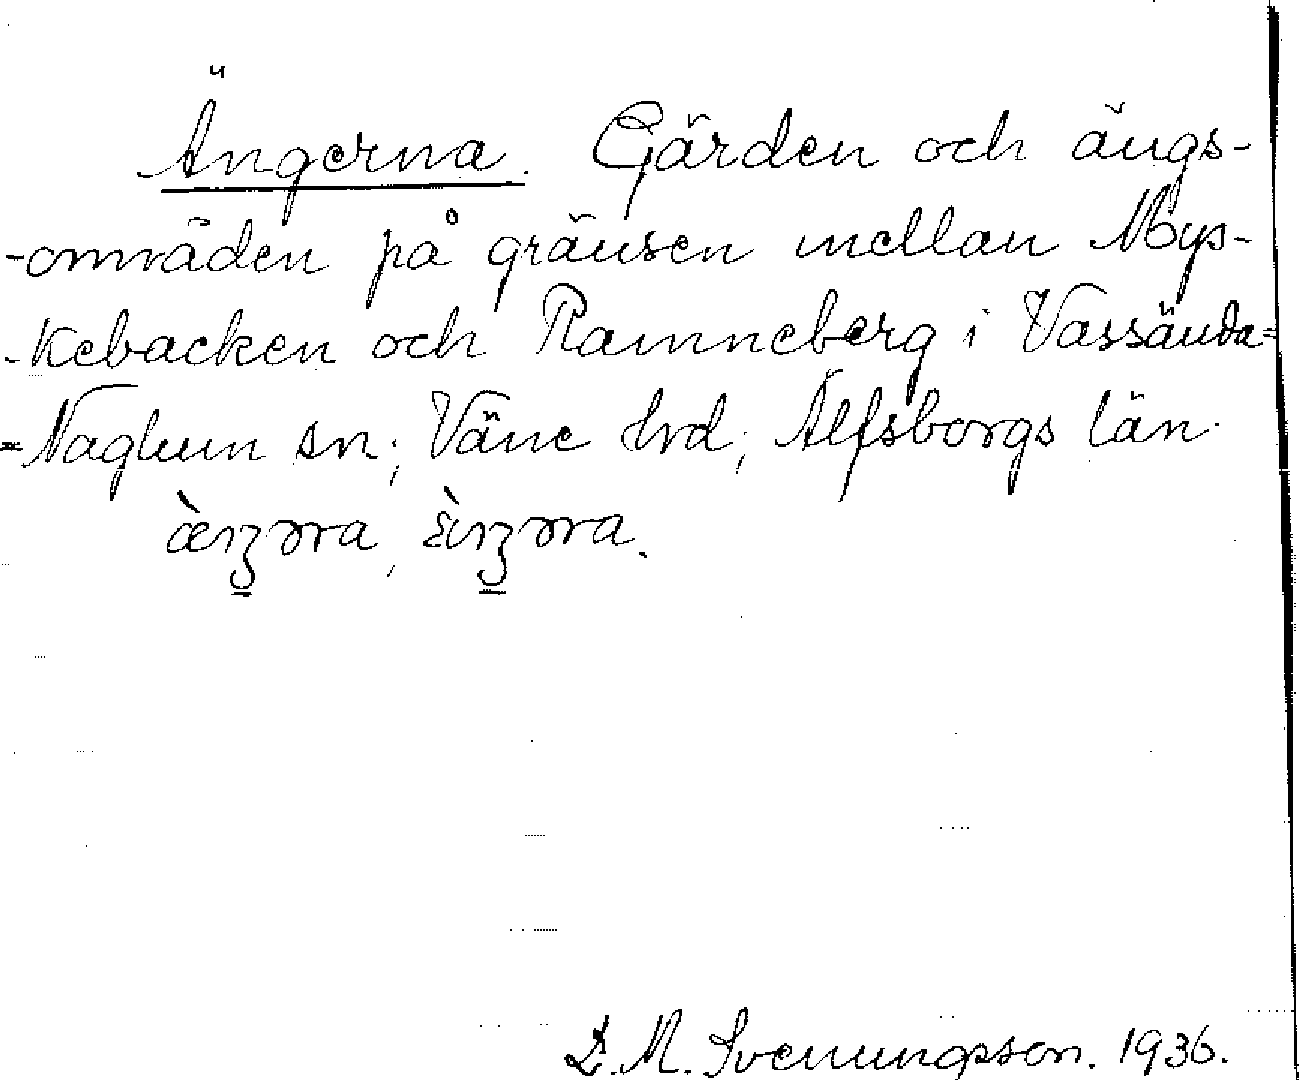 Ängerna. Gärden och ängs-
-områden på gränsen mellan Mys-
-kebacken och Ramneberg i Vassända=
=Naglum sn; Väne hrd; Älfsborgs län.
D. M. Svenungsson. 1936.